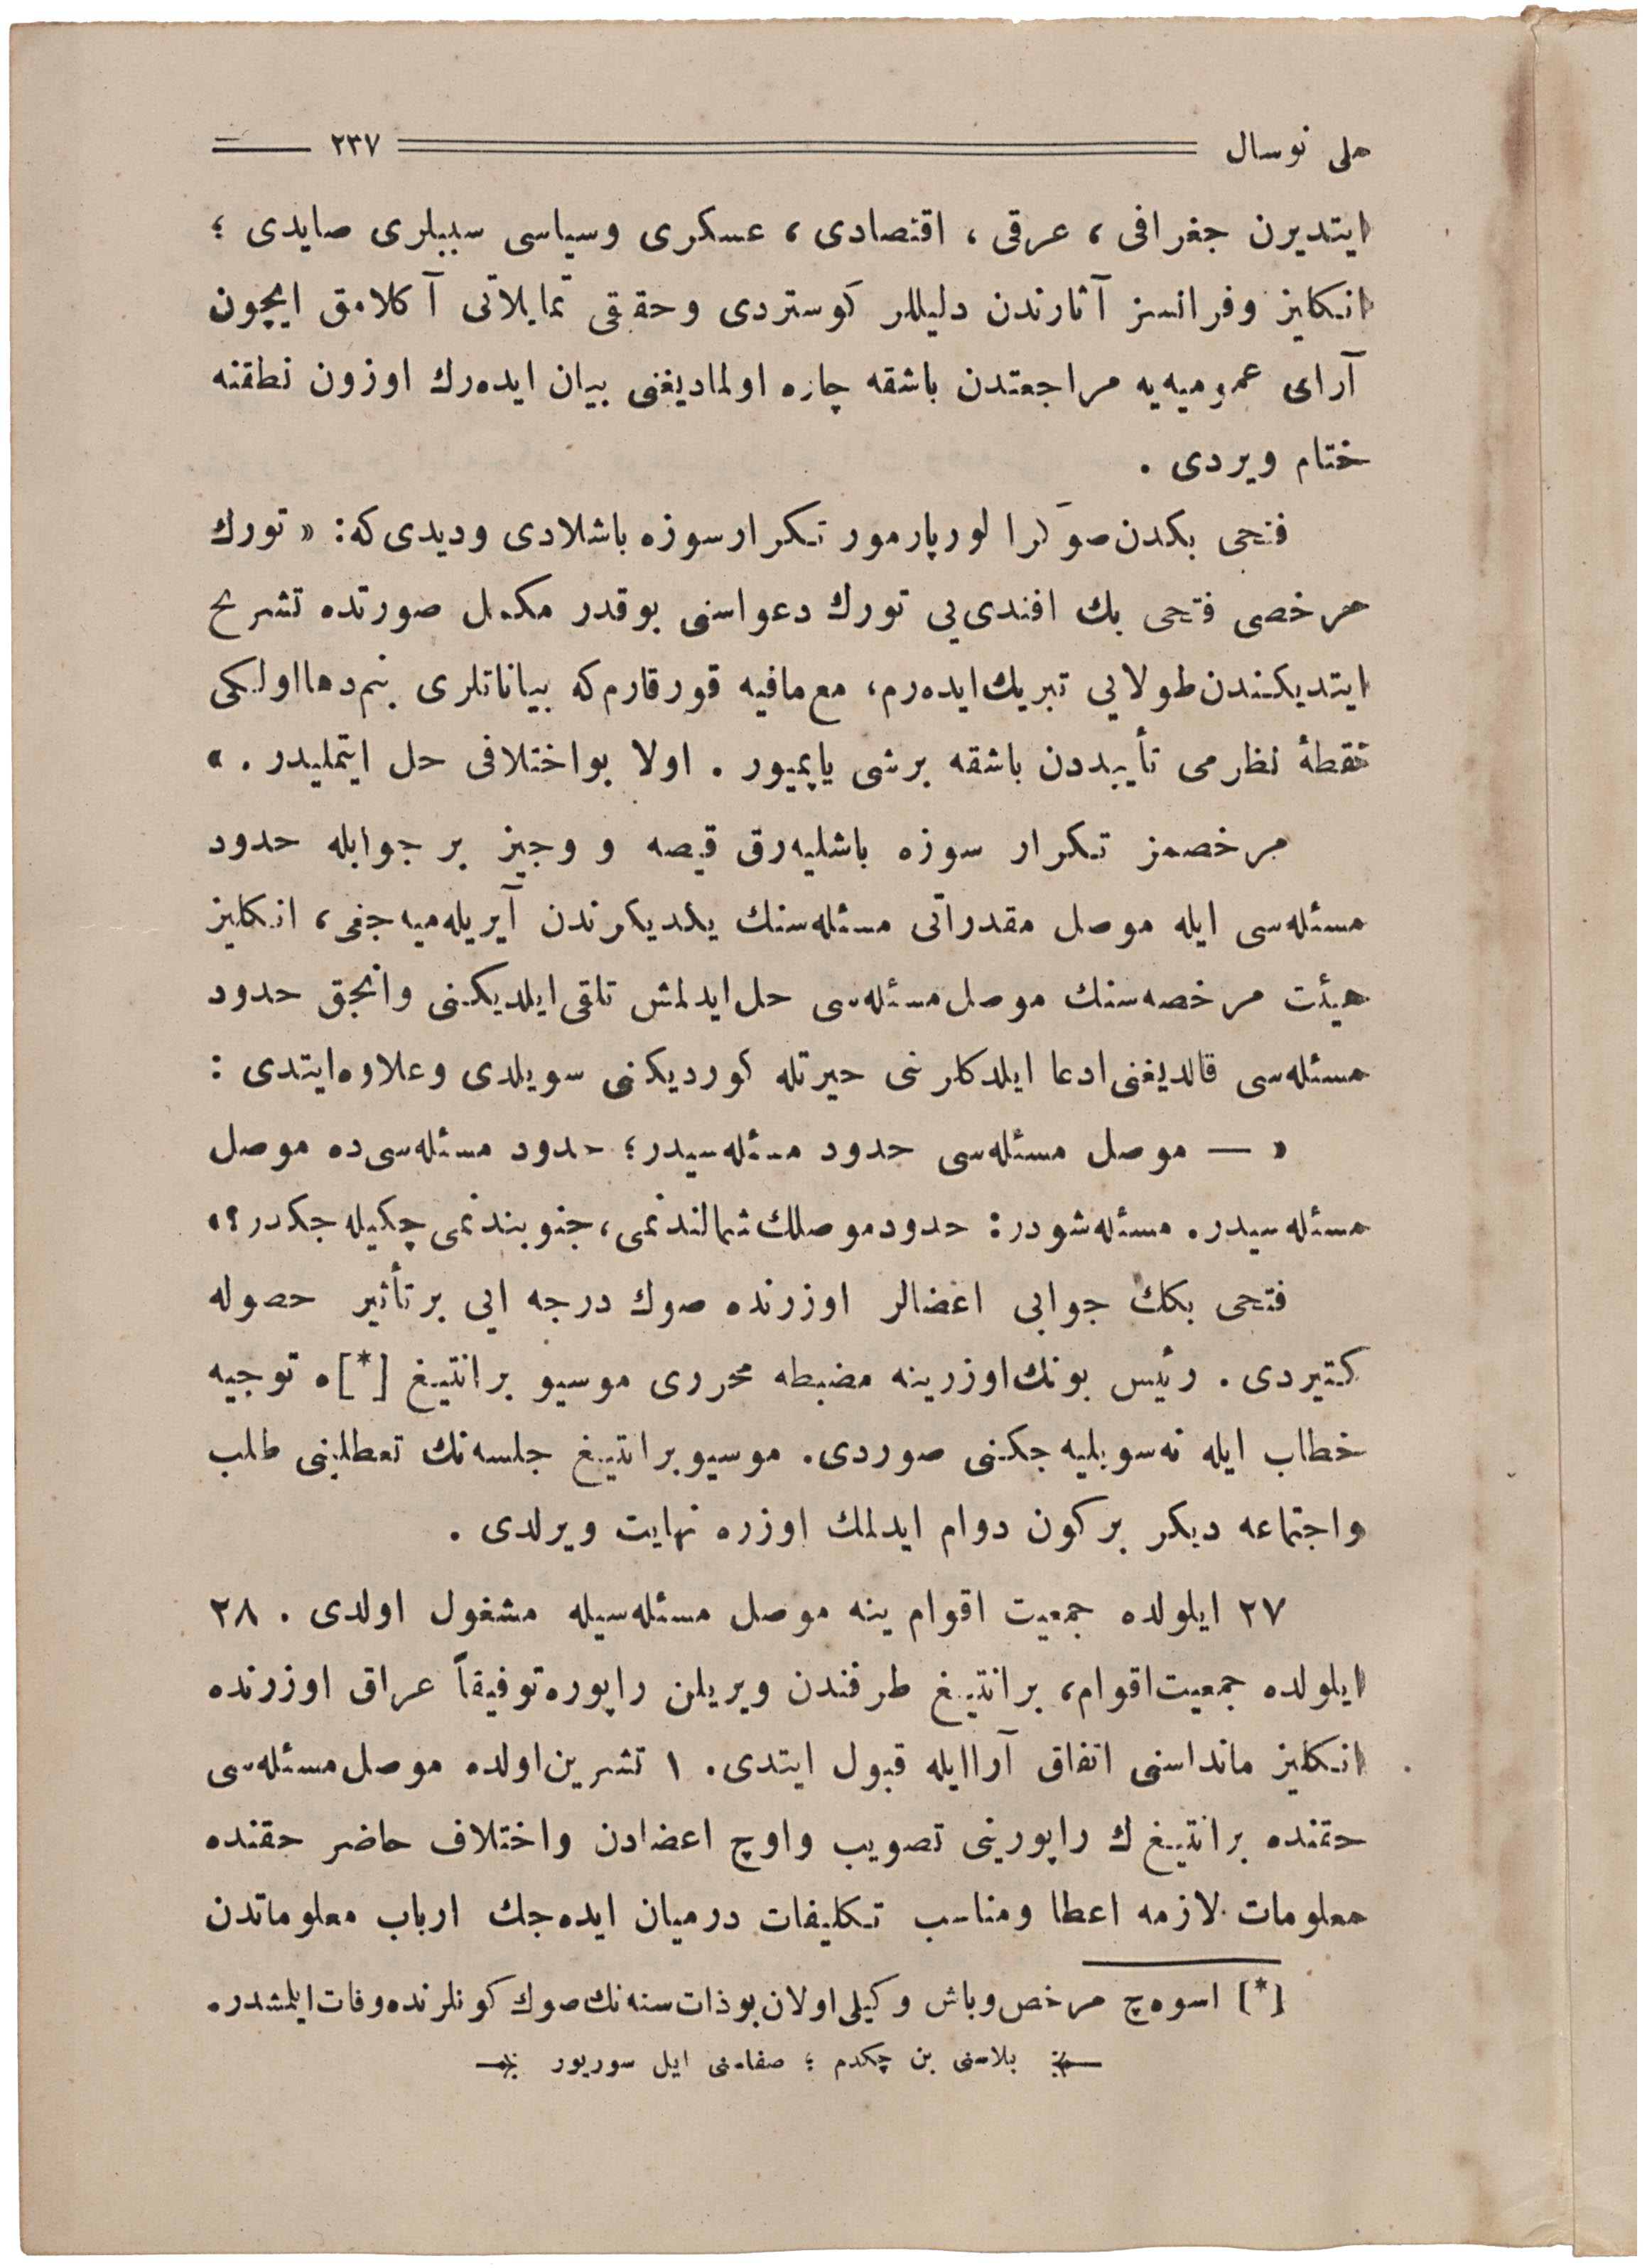 ملی نوسال ۲۳۷
ایتدیرن جغرافی ، عرقی ، اقتصادی ، عسکری وسیاسی سببلری صایدی ؛
انکلیز وفرانسز آثارندن دلیللر کوستردی وحقیقی تمایلاتی آکلامق ایچون
آرای عمومیه‌یه مراجعتدن باشقه چاره اولمادیغنی بیان ایده‌رك اوزون نطقنه
ختام ویردی .
فتحی بکدن صوکرا لورپارمور تکرار سوزه باشلادی ودیدی که : « تورك
مرخصی فتحی بك افندی‌یی تورك دعواسنی بوقدر مکمل صورتده تشریح
ایتدیکندن طولایی تبریك ایده‌رم، مع‌مافیه قورقارم که بیاناتلری بنم دها اولکی
نقطۀ نظرمی تأییددن باشقه برشی یاپمیور . اولا بواختلافی حل ایتملیدر . »
مرخصمز تکرار سوزه باشلیه‌رق قیصه و وجیز بر جوابله حدود
مسئله‌سی ایله موصل مقدراتی مسئله‌سنك یکدیکرندن آیریله‌میه‌جغی، انکلیز
هیئت مرخصه‌سنك موصل مسئله‌سی حل ایدلمش تلقی ایلدیکنی وانجق حدود
مسئله‌سی قالدیغنی ادعا ایلدکلرنی حیرتله کوردیکنی سویلدی وعلاوه ایتدی :
« — موصل مسئله‌سی حدود مسئله‌سیدر؛ حدود مسئله‌سی ده موصل
مسئله‌سیدر. مسئله شودر: حدود موصلك شمالندنمی، جنوبندنمی چکیله‌جکدر؟»
فتحی بکك جوابی اعضالر اوزرنده صوك درجه ایی برتأثیر حصوله
کتیردی . رئیس بونك اوزرینه مضبطه محرری موسیو برانتیغ [*]ه توجیه
خطاب ایله نه سویلیه‌جکنی صوردی. موسیو برانتیغ جلسه‌نك تعطلینی طلب
واجتماعه دیکر برکون دوام ایدلمك اوزره نهایت ویرلدی .
۲۷ ایلولده جمعیت اقوام ینه موصل مسئله‌سیله مشغول اولدی . ۲۸
ایلولده جمعیت اقوام، برانتیغ طرفندن ویریلن راپوره توفیقاً عراق اوزرنده
انکلیز مانداسنی اتفاق آراایله قبول ایتدی. ۱ تشرین‌اولده موصل مسئله‌سی
حقنده برانتیغ ك راپورینی تصویب واوچ اعضادن واختلاف حاضر حقنده
معلومات لازمه اعطا ومناسب تکلیفات درمیان ایده‌جك ارباب معلوماتدن
[*] اسوه‌چ مرخص وباش وکیلی اولان بوذات سنه‌نك صوك کونلرنده وفات ایلمشدر.
بلاسنی بن چکدم ؛ صفاسنی ایل سوریور